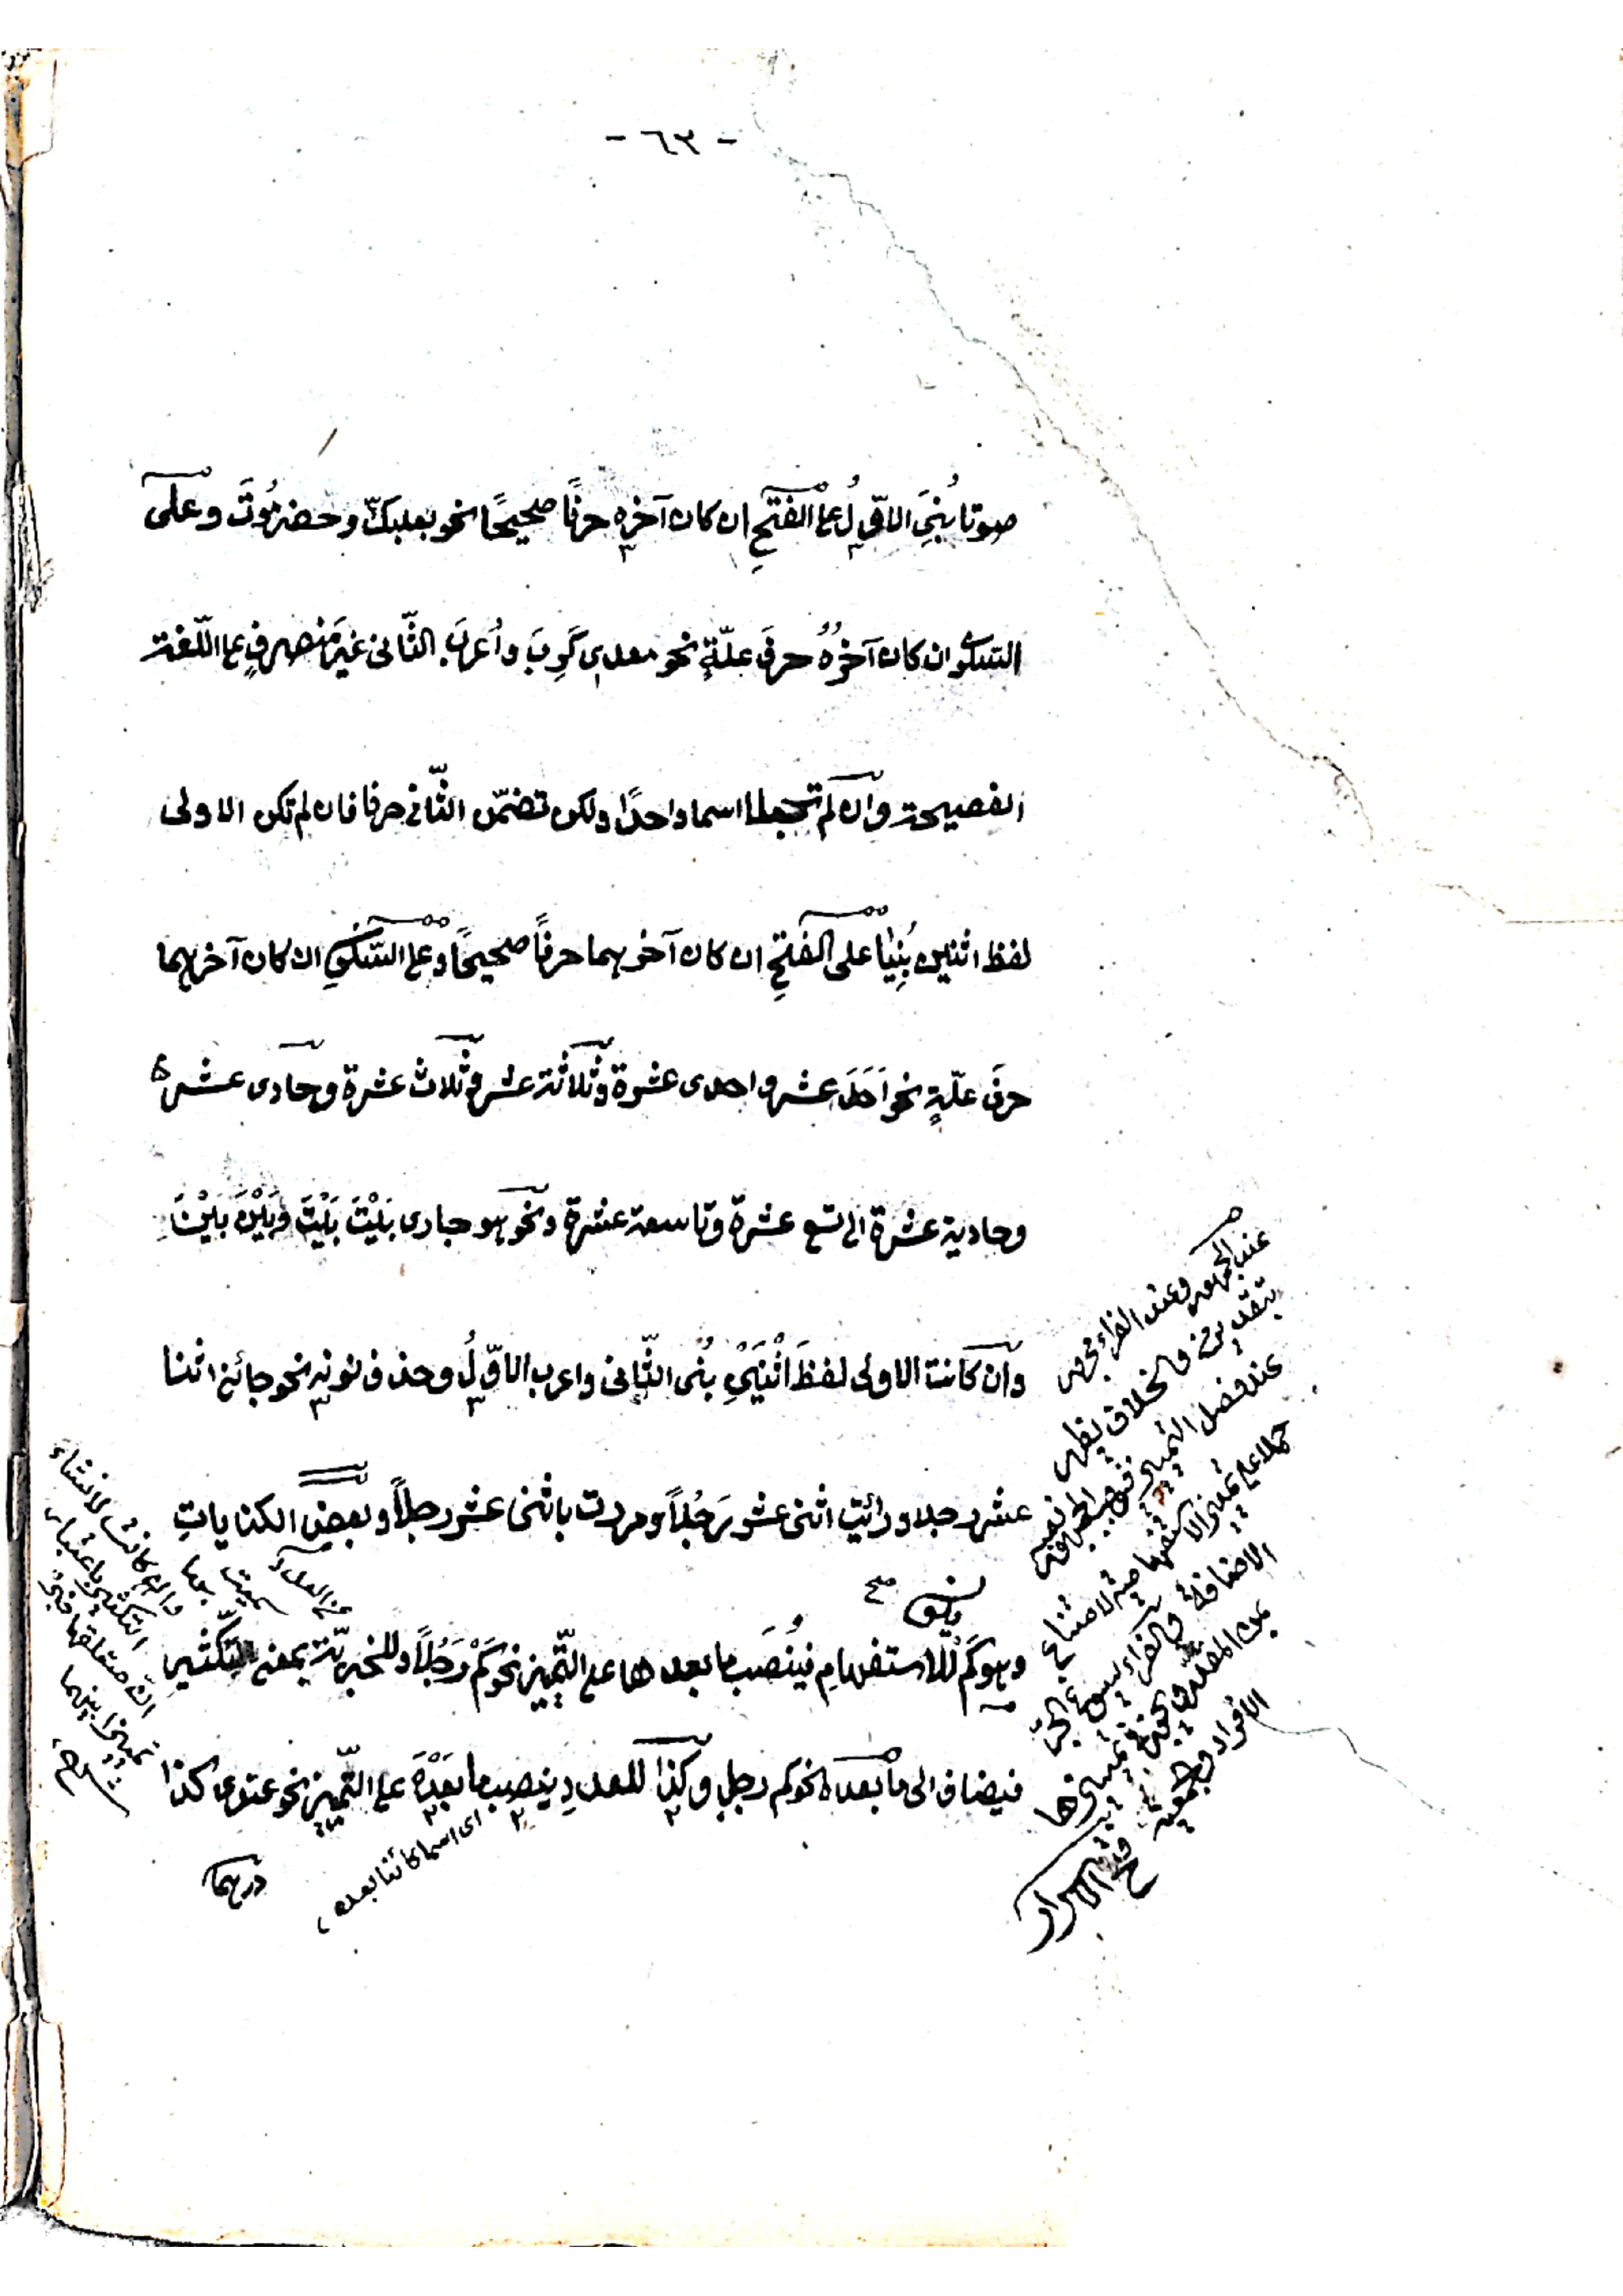 - ٦٣ -
صوتا بُنِىَ الاوّلُ على الفتحِ ان كان آخره حرفًا صحيحًا نحو بعلبكّ وحضرمُوتَ وعلى
السّكو ان كان آخرُهُ حرفَ علّةٍ نحو معدى كَرِبَ واُعرِبَ الثّانى غيرَ منصرفٍ على اللّغة
الفصيحة وان لم تجعلا اسما واحدًا ولكن تضمّن الثّانى حرفا فان لم تكن الاولى
لفظ اثنين بُنِيَا على الفتحِ ان كان آخرهما حرفًا صحيحًا وعلى السّكون ان كان آخرهما
حرفَ علّةٍ نحو اَحَدَ عشر واحدى عشرة وثلاثة عشر وثلاث عشرة وحادى عشر
وحادية عشرة الى تسع عشرة وتاسعة عشرة ونحو هو جارى بَيْتَ بَيْتَ وبَيْنَ بَيْنَ
وان كانت الاولى لفظَ اثْنَيْنِ بُنى الثّانى واعرب الاوّلُ وحذف نونه نحو جائنى اثنا
عشر رجلا ورائيت اثنى عشر رَجُلاً ومررت باثنى عشر رجلاً وبعض الكناياتِ
وهو كَمْ للاستفهامِ فيُنْصَب ما بعدها على التّمييز نحو كَمْ رَجُلاً وللخبريّة بمعنى التكثير
فيضاف الى ما بعده نحو كم رجلٍ وكذا للعددِ ينصب ما بعْدَهُ على التّمييز نحو عندى كذا
درهما
اى اسما كائنا بعده
عند الجمهور وعند الفراء مجرور
بتقدير من والخلاف يظهر
عند فصل التمييز
الاضافة